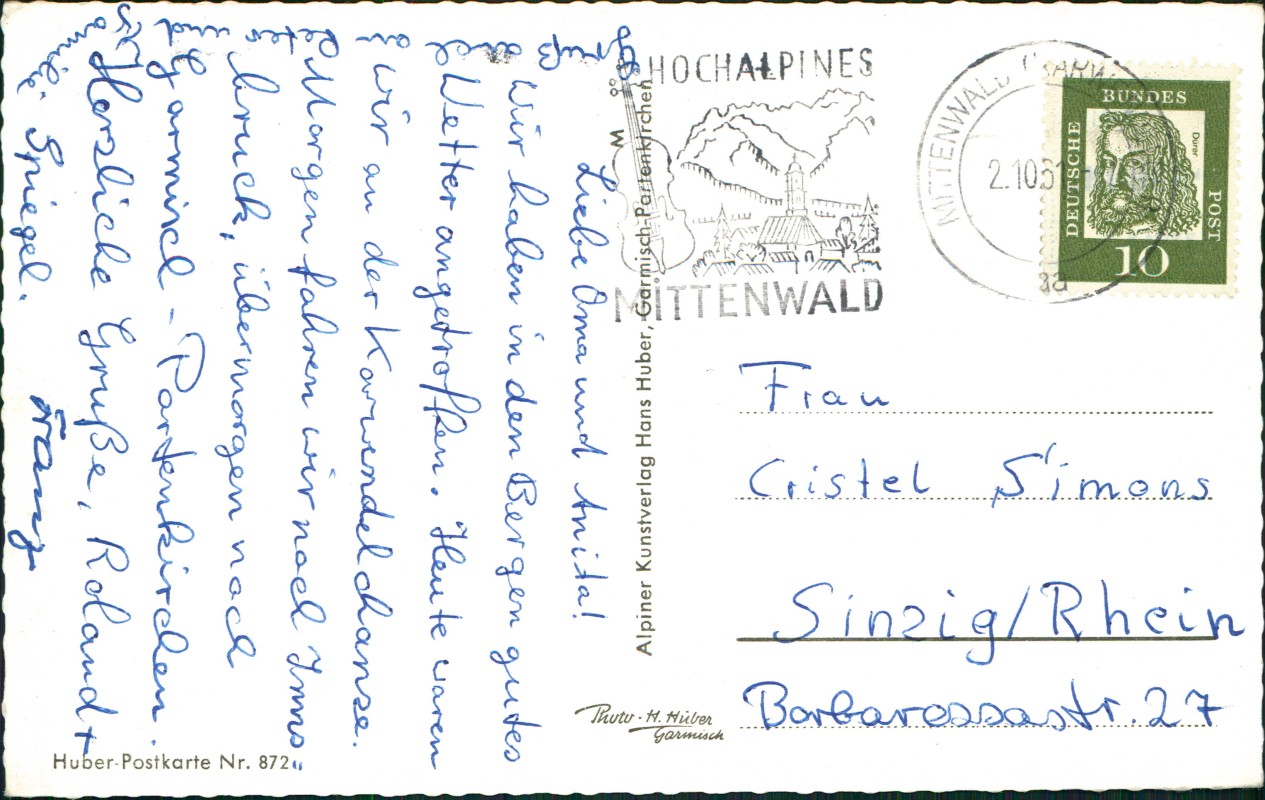 Liebe Oma und Anita!
Wir haben in den Bergen gutes
Wetter angetroffen. Heute waren
wir an der Karwendelchanze.
Morgen fahren wir nach Inns-
bruck, übermorgen nach
Garmisch - Partenkirchen.
Herzliche Grüße, Roland +
Franz
Spiegel.
Gruß auch
an
und
HOCHALPINES
W
MITTENWALD
MITTENWALD (KARW
2.10.61
aa
DEUTSCHE
BUNDES
POST
Dürer
10
Alpiner Kunstverlag Hans Huber, Garmisch-Partenkirchen
Frau
Cristel Simons
Sinzig/Rhein
Barbarossastr. 27
Photo-H. Huber
Garmisch
Huber-Postkarte Nr. 872